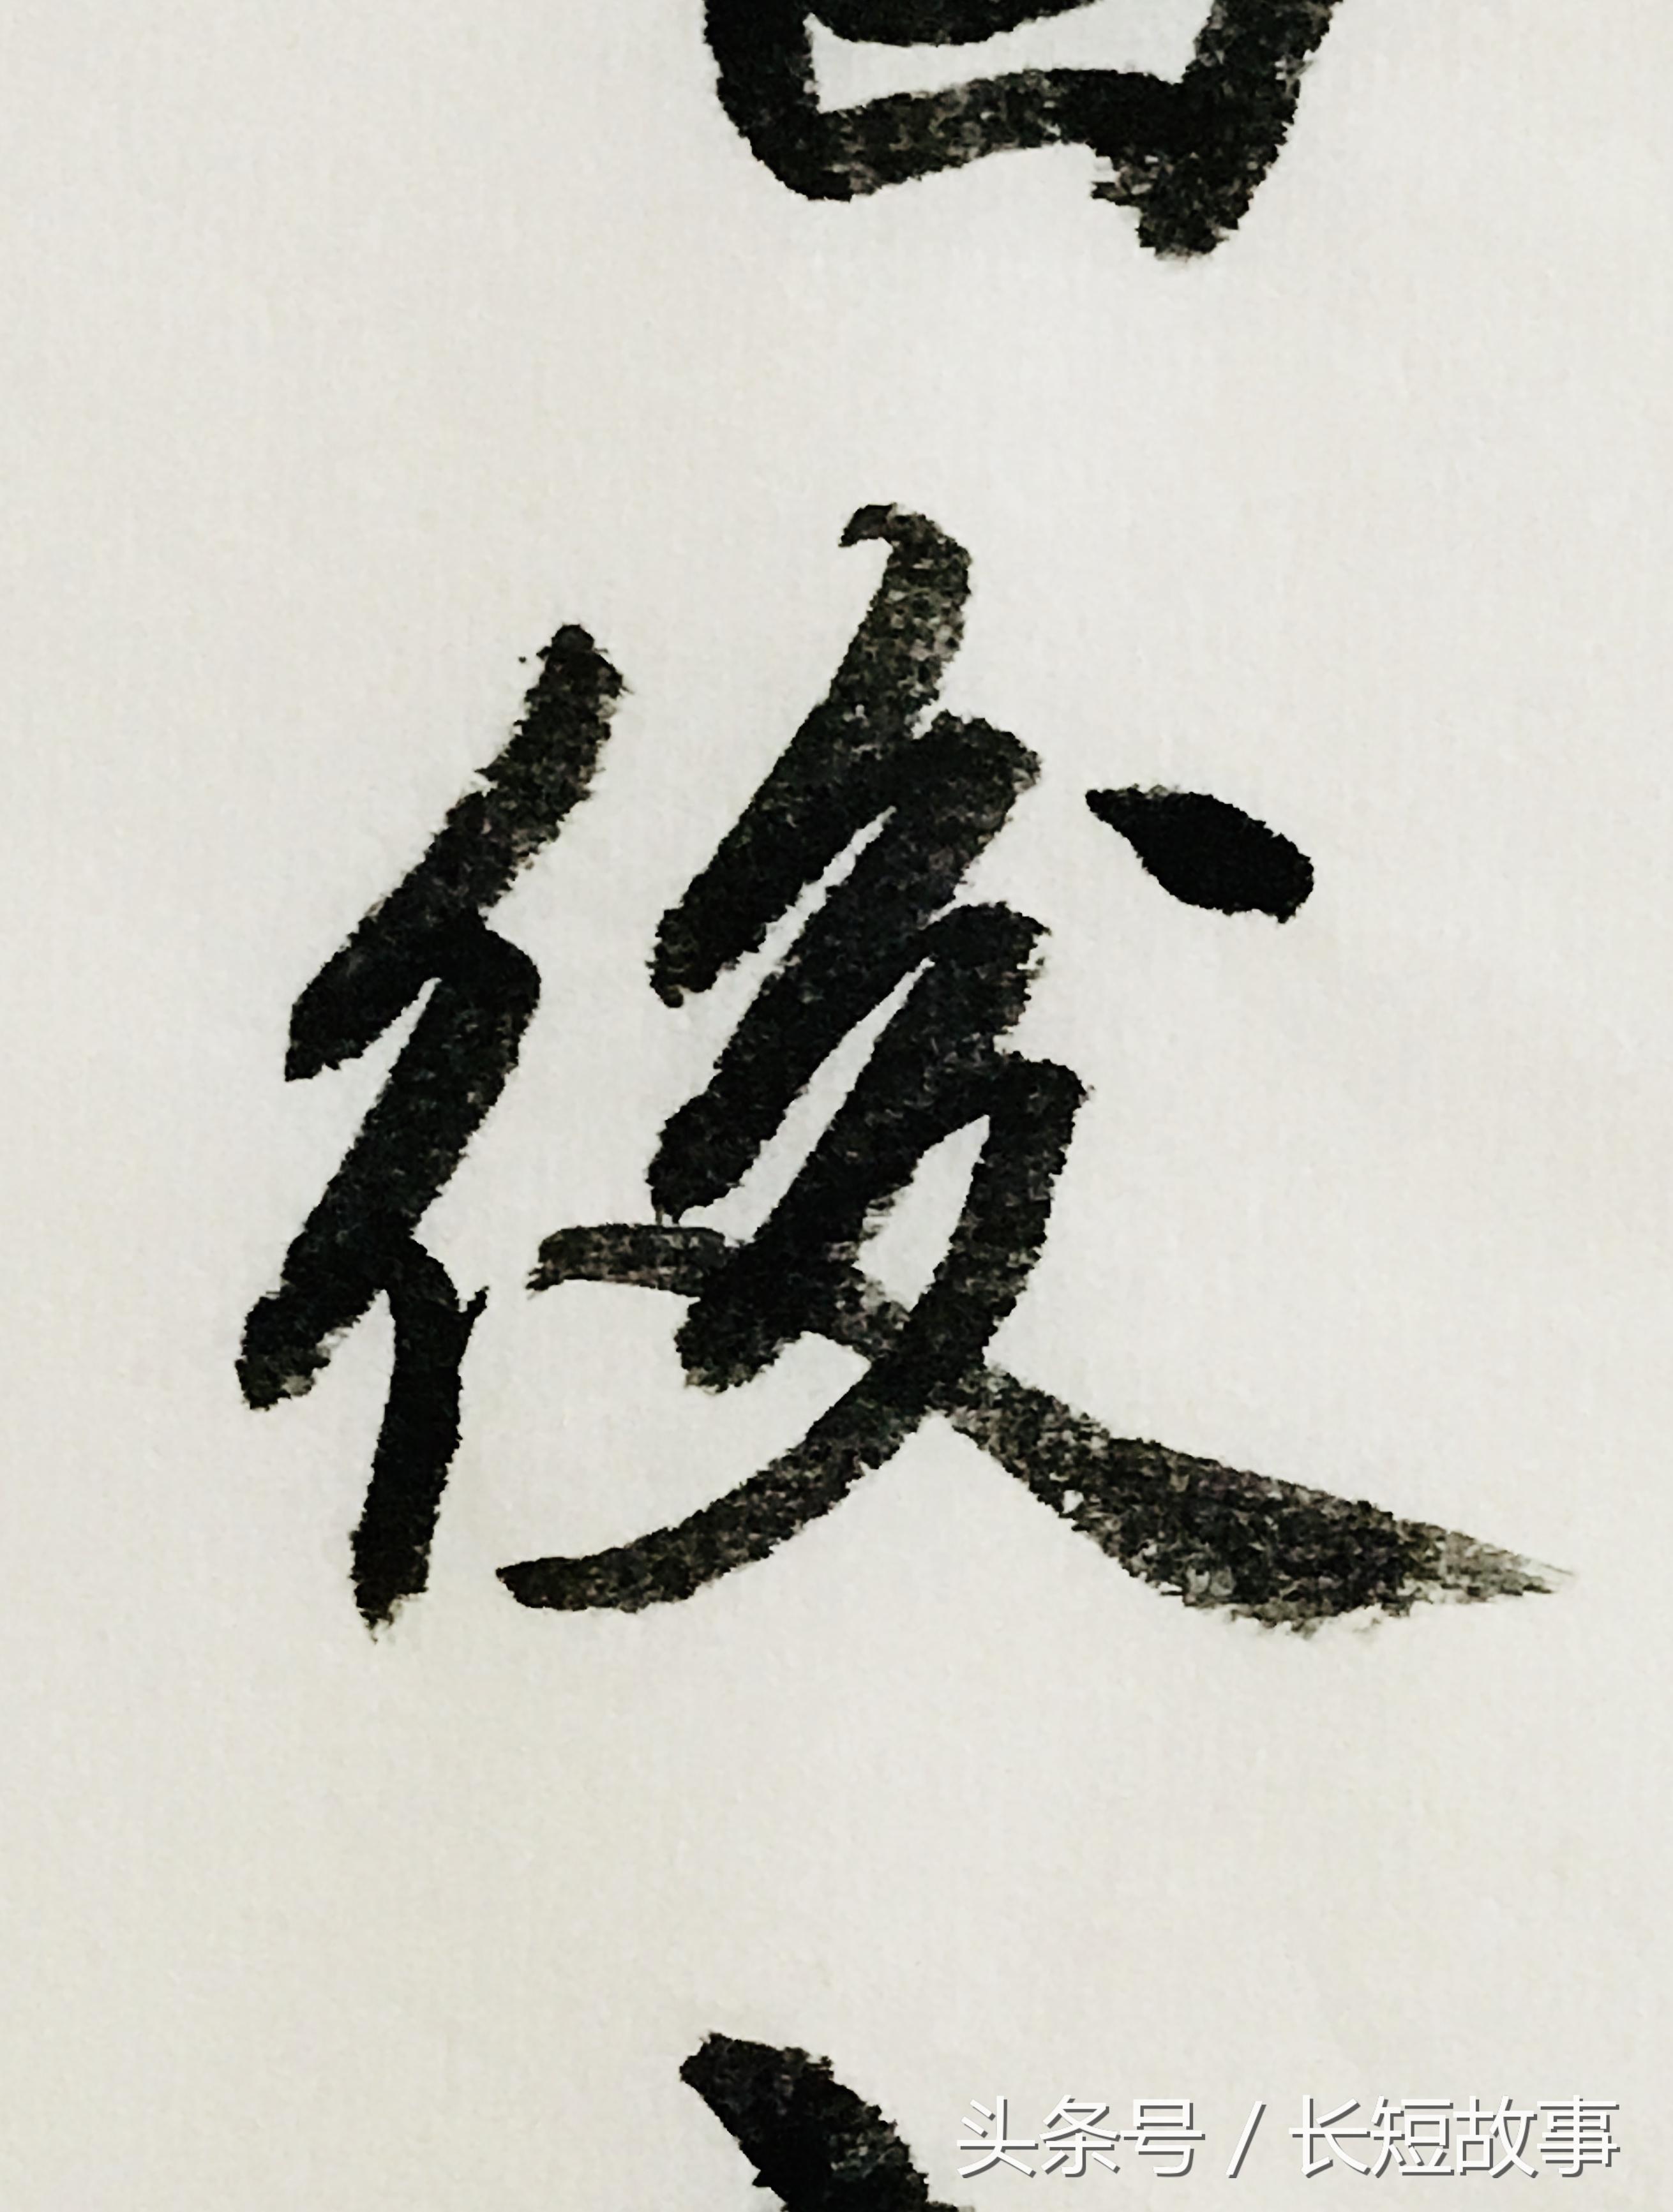 後
头条号 / 长短故事